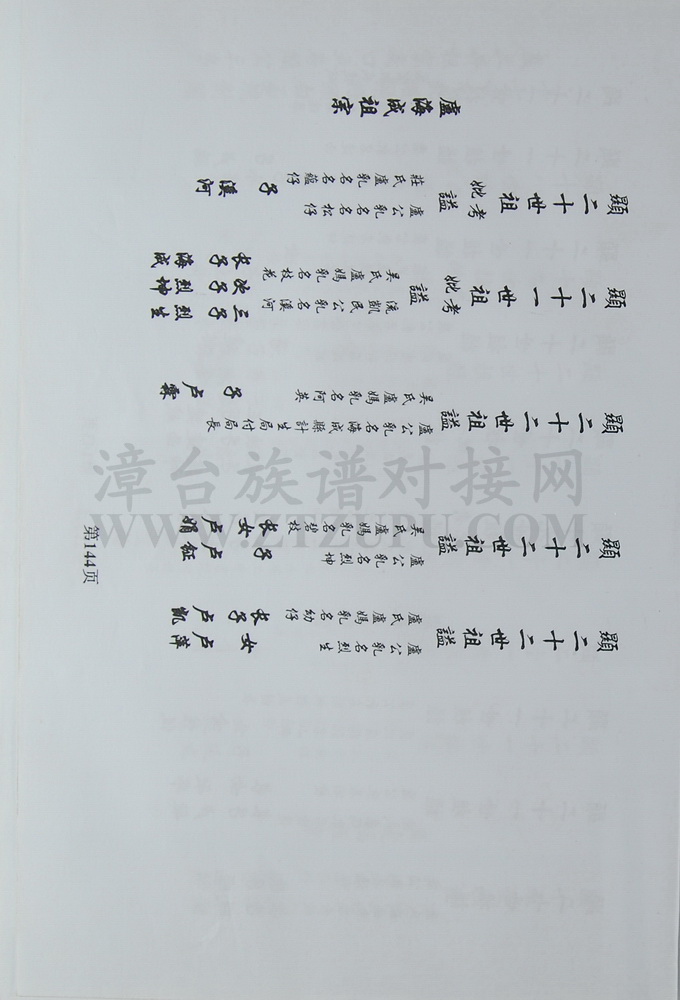 盧海成祖宗
顯二十世祖考妣謚
莊氏盧名乳名蘊仔
盧公乳名松仔
子 溪河
顯二十一世祖考妣謚
吳氏盧媽乳名枝花
流凱民公乳名溪河
长子海成
次子烈坤
三子烈生
顯二十二世祖謚
吳氏盧媽乳名阿英
盧公乳名海成縣計生局付局長
子卢霖
顯二十二世祖謚
吳氏盧媽乳名碧枝
盧公乳名烈坤
长女卢娟
子卢鉦
顯二十二世祖謚
盧氏盧媽乳名幼仔
盧公乳名烈生
长子卢凱
女卢萍
第144页
漳台族谱对接网
WWW.ZTZUPU.COM